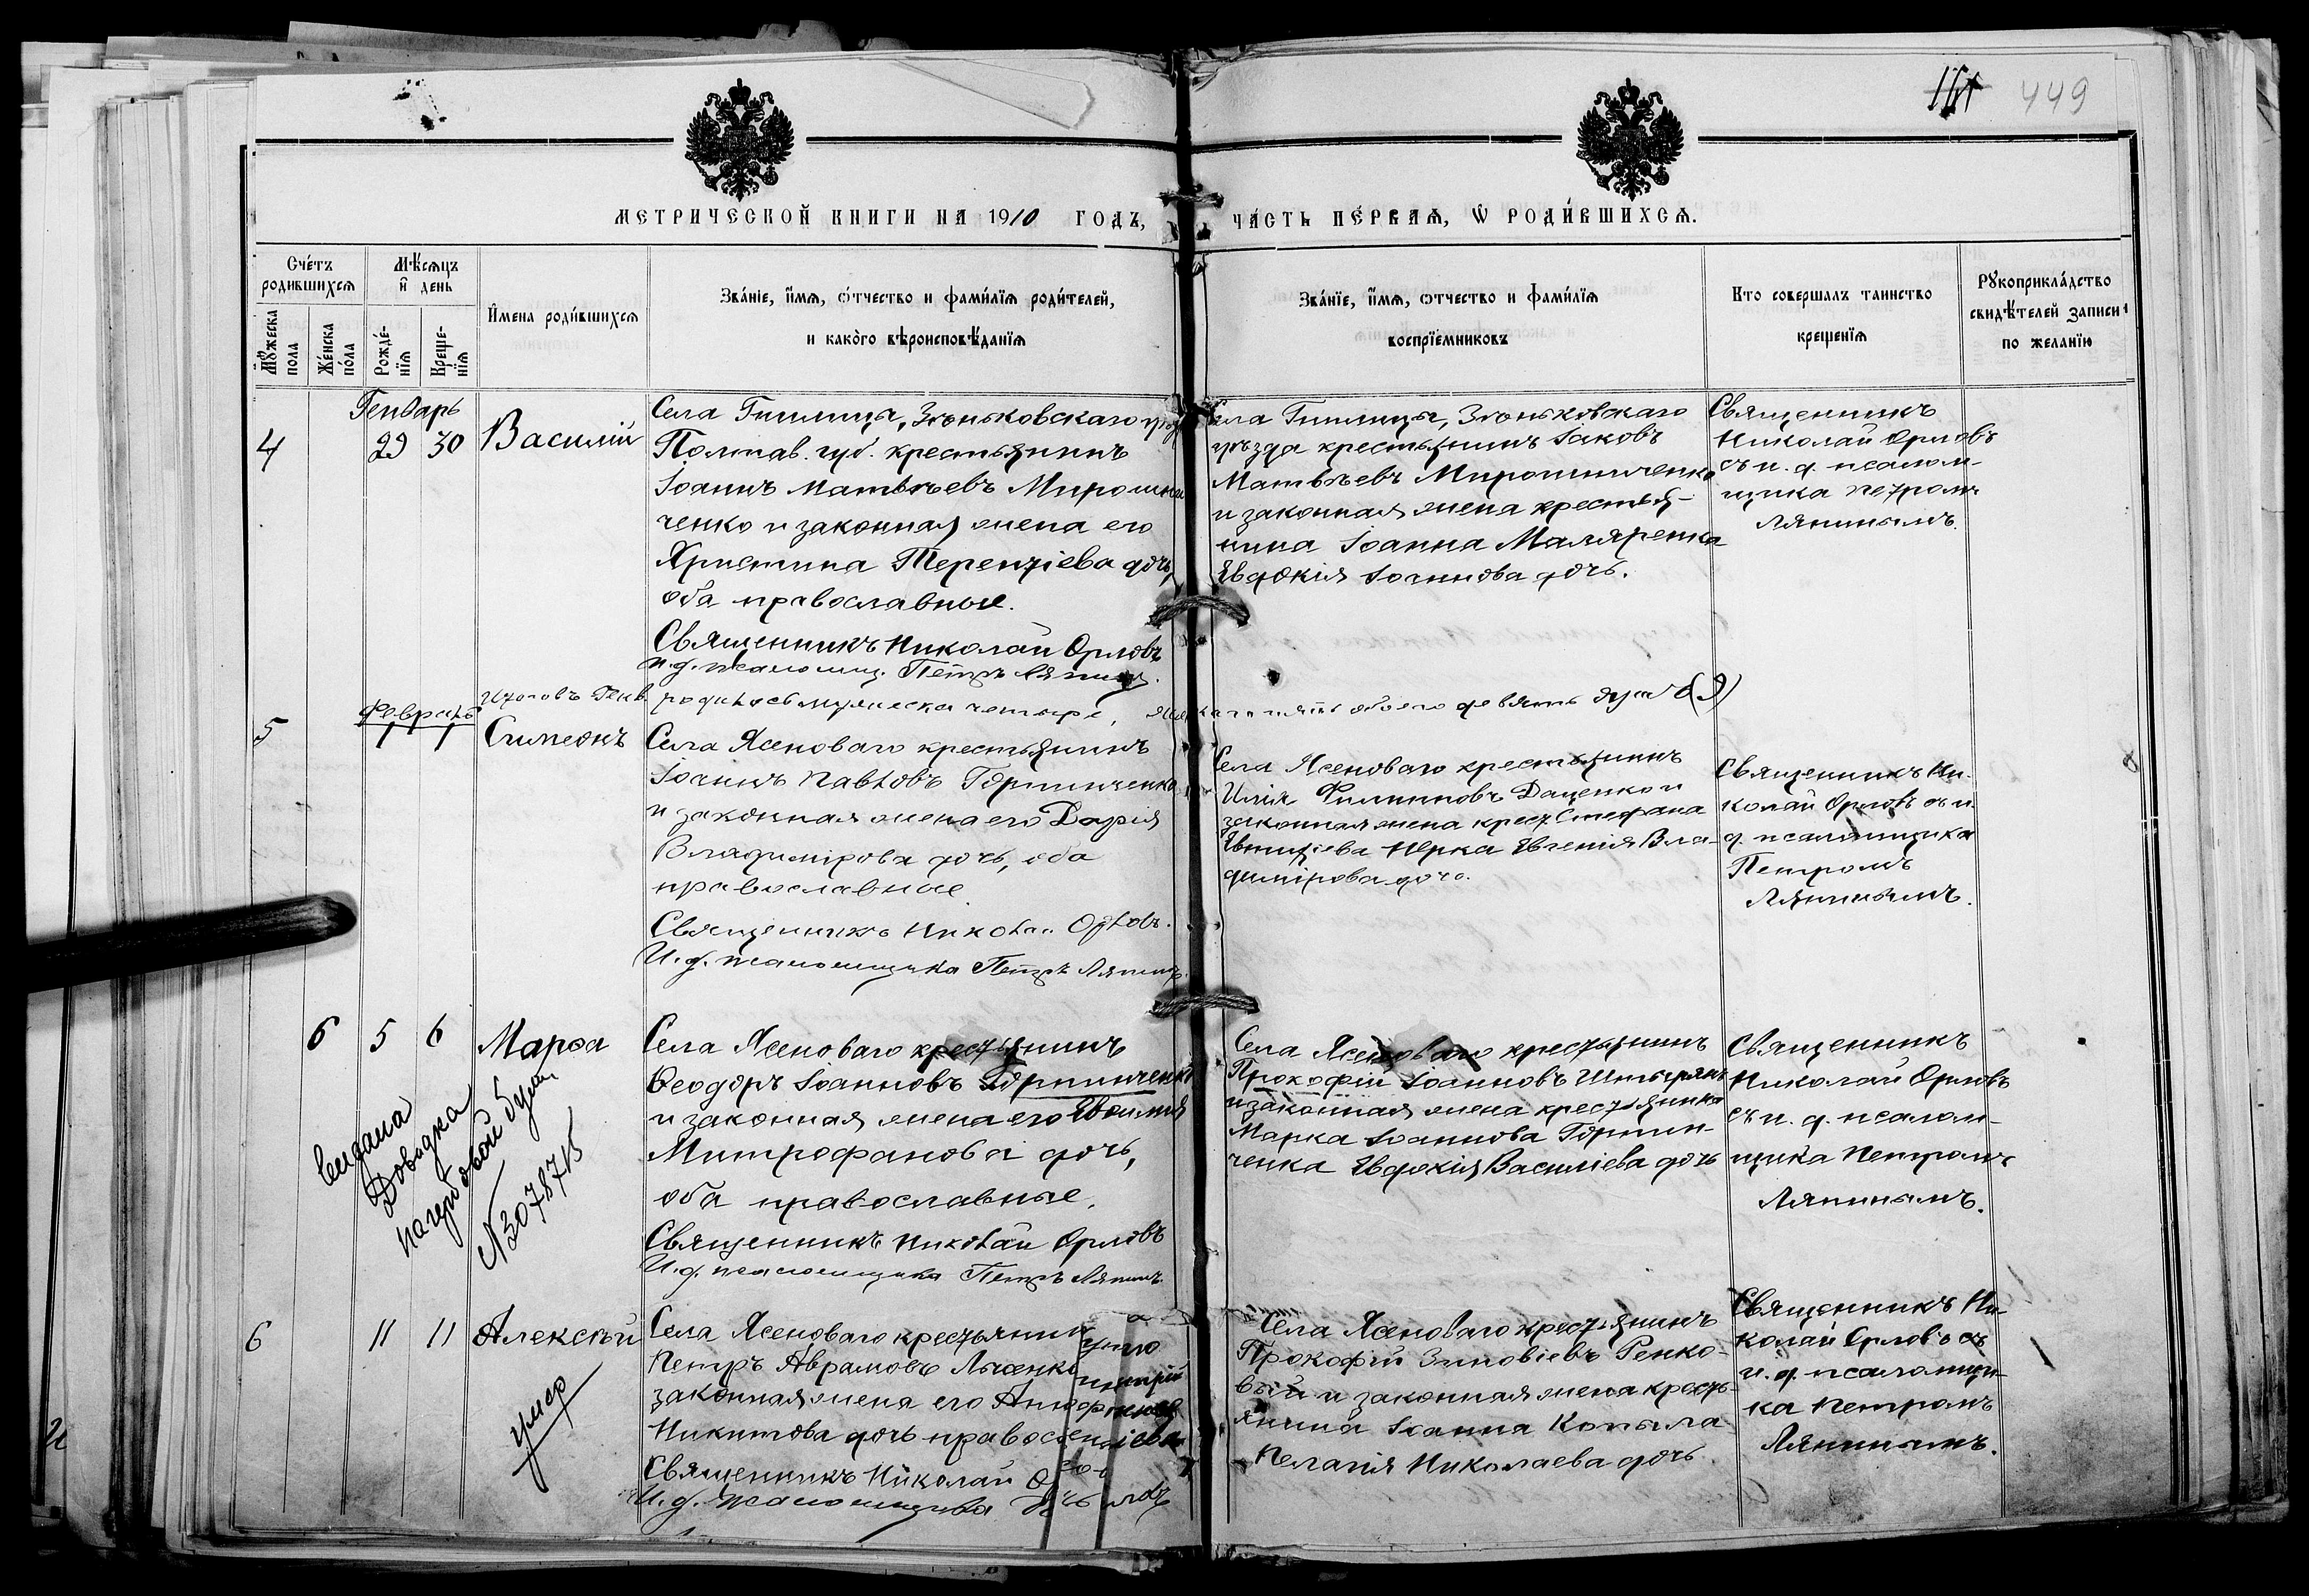 449
МЕТРИЧЕСКОЙ КНИГИ НА 1910 ГОДЪ,
ЧА́СТЬ ПЕ́РВАѦ, Ѡ РОДИ́ВШИХСѦ.
Сче́тъ родившихсѧ
Мѣ́сѧцъ и҆ день
Мꙋ́жеска пола
Же́нска по́ла
Рожде́-нїѧ
Креще-нїѧ
И҆мена роди́вшихсѧ
Зва́нїе, и҆́мѧ, ѻ҆́тчество и фами́лїѧ роди́телей,
и како́гѡ вѣроисповѣ́данїѧ
Зва́нїе, и҆́мѧ, ѻтчество и фами́лїѧ
воспрїе́мниковъ
Кто совершалъ таинство
креще́нїѧ
Рꙋкоприкла́дство
свидѣ́телей записи
по жела́нїю
Генварь
4
29 30
Василій
Села Гнилица, Зѣньковскаго
Полтав. губ. крестьянинъ
Іоаннъ Матвѣевъ Мирошни
ченко и законная жена его
Христина Терентіева дочь,
оба православные.
Священникъ Николай Орловъ
И. д. псаломщ. Петръ Ляпинъ.
Села Гнилицы, Зѣньковскаго
уѣзда крестьянинъ Іаковъ
Матвѣевъ Мирошниченко
и законная жена крестья-
нина Іоанна Маляренка
Евдокія Іоаннова дочь.
Священникъ
Николай Орловъ
съ и. д. псалом-
щика Петромъ
Ляпинымъ.
Итого въ Генв. родилось мужеска четыре, пять обоего девять душъ (9)
Февраль
5
1 1
Симеонъ
Села Ясеноваго крестьянинъ
Іоаннъ Павловъ Горпинченко
и законная жена его Дарія
Владимірова дочь, оба
православные
Священникъ Николай Орловъ.
И. д. псаломщика Петръ Ляпинъ.
Села Ясеноваго крестьянинъ
Илія Филипповъ Даценко и
законная жена крест. Стефана
Нерка Евгенія Вла-
димірова дочь.
Священникъ Ни-
колай Орловъ съ и.
д. псаломщика
Петромъ
Ляпинымъ.
6
5 6
Марѳа
Видана
Довидка
на гербовой бум.
N 3078715
Села Ясеноваго крестьянинъ
Ѳеодоръ Іоанновъ Горпинченко
и законная жена его Евфимія
Митрофанова дочь,
оба православные.
Священникъ Николай Орловъ
И. д. псаломщика Петръ Ляпинъ
Села Ясеноваго крестьянинъ
Прокофій Іоанновъ
и законная жена крестьянина
Марка Іоаннова Горпин-
ченка Евдокія Василіева дочь
Священникъ
Николай Орловъ
съ и. д. псалом-
щика Петромъ
Ляпинымъ.
6
11 11
Алексѣй
умер
Села Ясеноваго крестьянин
Петръ Аврамовъ
законная жена его
Никитова дочь правос
Священникъ Николай
И. д. псаломщика
Села Ясеноваго крестьянинъ
Прокофій Зиновіевъ Ренко-
вый и законная жена кресть-
янина Іоанна Копыла
Пелагія Николаева дочь.
Священникъ Ни-
колай Орловъ съ
и. д. псаломщи-
ка Петромъ
Ляпинымъ.